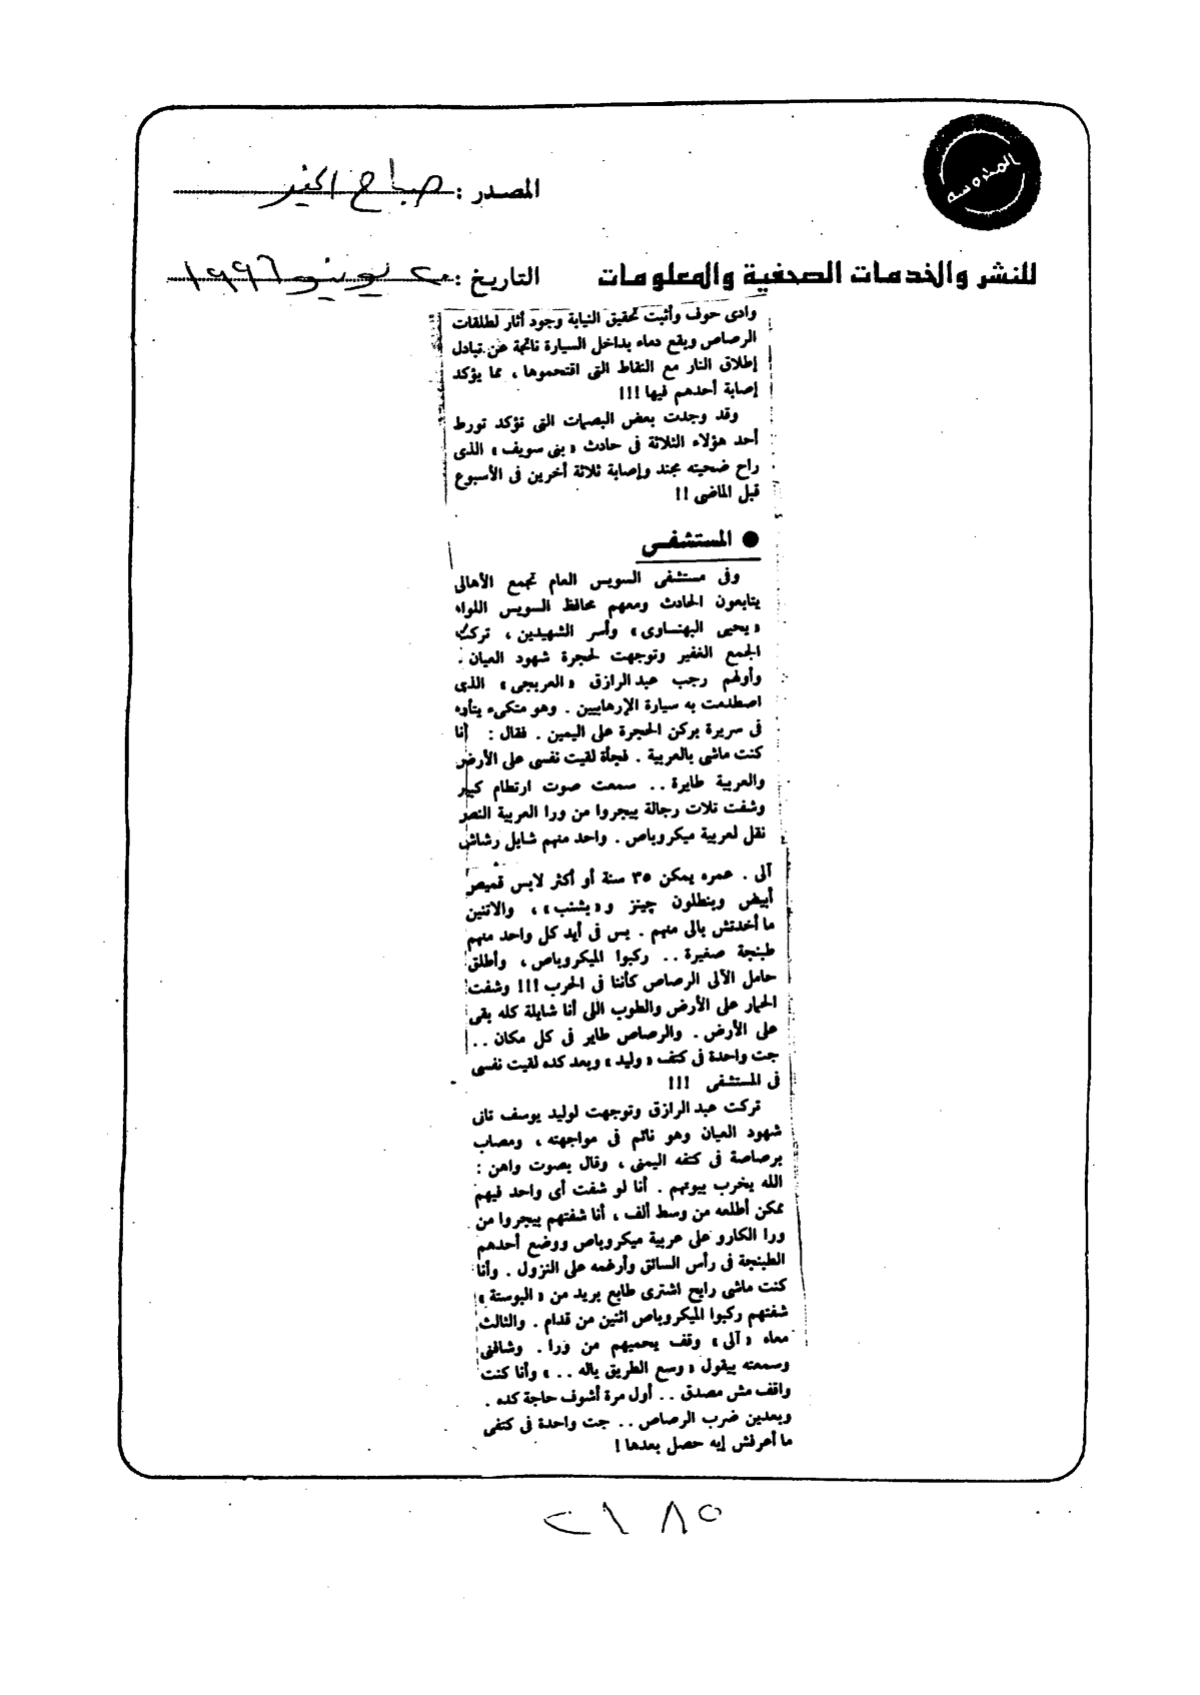 المحروسة
المصدر : صباح الخير
للنشر والخدمات الصحفية والمعلومات
التاريخ : ٢٠ يونيو ١٩٩٦
وادى حوف وأثبت تحقيق النيابة وجود أثار لطلقات
الرصاص وبقع دماء بداخل السيارة ناتجة عن تبادل
إطلاق النار مع النقاط التى اقتحموها ، مما يؤكد
إصابة أحدهم فيها !!!
وقد وجدت بعض البصمات التى تؤكد تورط
أحد هؤلاء الثلاثة فى حادث « بنى سويف » الذى
راح ضحيته مجند وإصابة ثلاثة أخرين فى الأسبوع
قبل الماضى !!
● المستشفى
وفى مستشفى السويس العام تجمع الأهالى
يتابعون الحادث ومعهم محافظ السويس اللواء
« يحيى البهنساوى » وأسر الشهيدين ، تركت
الجمع الغفير وتوجهت لحجرة شهود العيان .
وأولهم رجب عبد الرازق « العربجى » الذى
اصطدمت به سيارة الإرهابيين . وهو متكىء يتأوه
فى سريرة بركن الحجرة على اليمين . فقال : أنا
كنت ماشى بالعربية . فجأة لقيت نفسى على الأرض
والعربية طايرة .. سمعت صوت ارتطام كبير
وشفت تلات رجالة بيجروا من ورا العربية النص
نقل لعربية ميكروباص . واحد منهم شايل رشاش
آلى . عمره يمكن ٣٥ سنة أو أكثر لابس قميص
أبيض وبنطلون چينز و« بشنب » ، والاتنين
ما أخدتش بالى منهم . بس فى أيد كل واحد منهم
طبنجة صغيرة .. ركبوا الميكروباص ، وأطلق
حامل الآلى الرصاص كأننا فى الحرب !!! وشفت
الحمار على الأرض والطوب اللى أنا شايلة كله بقى
على الأرض . والرصاص طاير فى كل مكان ..
جت واحدة فى كتف « وليد » وبعد كده لقيت نفسى
فى المستشفى !!!
تركت عبد الرازق وتوجهت لوليد يوسف تانى
شهود العيان وهو نائم فى مواجهته ، ومصاب
برصاصة فى كتفه اليمنى ، وقال بصوت واهن :
الله يخرب بيوتهم . أنا لو شفت أى واحد فيهم
ممكن أطلعه من وسط ألف ، أنا شفتهم بيجروا من
ورا الكارو على عربية ميكروباص ووضع أحدهم
الطبنجة فى رأس السائق وأرغمه على النزول . وأنا
كنت ماشى رايح اشترى طابع بريد من « البوستة »
شفتهم ركبوا الميكروباص اثنين من قدام . والثالث
معاه « آلى » وقف يحميهم من ورا . وشافنى
وسمعته بيقول « وسع الطريق ياله .. » وأنا كنت
واقف مش مصدق .. أول مرة أشوف حاجة كده .
وبعدين ضرب الرصاص .. جت واحدة فى كتفى
ما أعرفش إيه حصل بعدها !
٢١٨٥